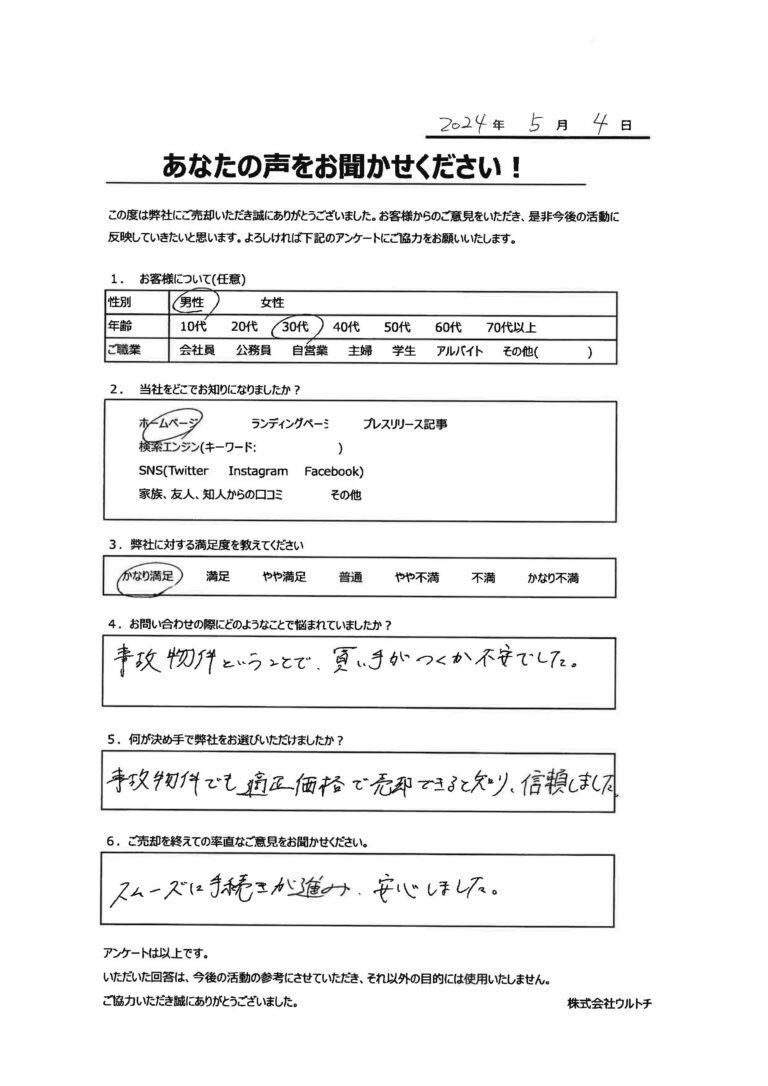 2024年 5月 4日
あなたの声をお聞かせください！
この度は弊社にご売却いただき誠にありがとうございました。お客様からのご意見をいただき、是非今後の活動に
反映していきたいと思います。よろしければ下記のアンケートにご協力をお願いいたします。
1. お客様について(任意)
性別 男性 女性
年齢 10代 20代 30代 40代 50代 60代 70代以上
ご職業 会社員 公務員 自営業 主婦 学生 アルバイト その他( )
2. 当社をどこでお知りになりましたか？
ホームページ ランディングページ プレスリリース記事
検索エンジン(キーワード: )
SNS(Twitter Instagram Facebook)
家族、友人、知人からの口コミ その他
3. 弊社に対する満足度を教えてください
かなり満足 満足 やや満足 普通 やや不満 不満 かなり不満
4. お問い合わせの際にどのようなことで悩まれていましたか？
事故物件ということで、買い手がつくか不安でした。
5. 何が決め手で弊社をお選びいただけましたか？
事故物件でも適正価格で売却できると知り、信頼しました。
6. ご売却を終えての率直なご意見をお聞かせください。
スムーズに手続きが進み、安心しました。
アンケートは以上です。
いただいた回答は、今後の活動の参考にさせていただき、それ以外の目的には使用いたしません。
ご協力いただき誠にありがとうございました。 株式会社ウルトチ